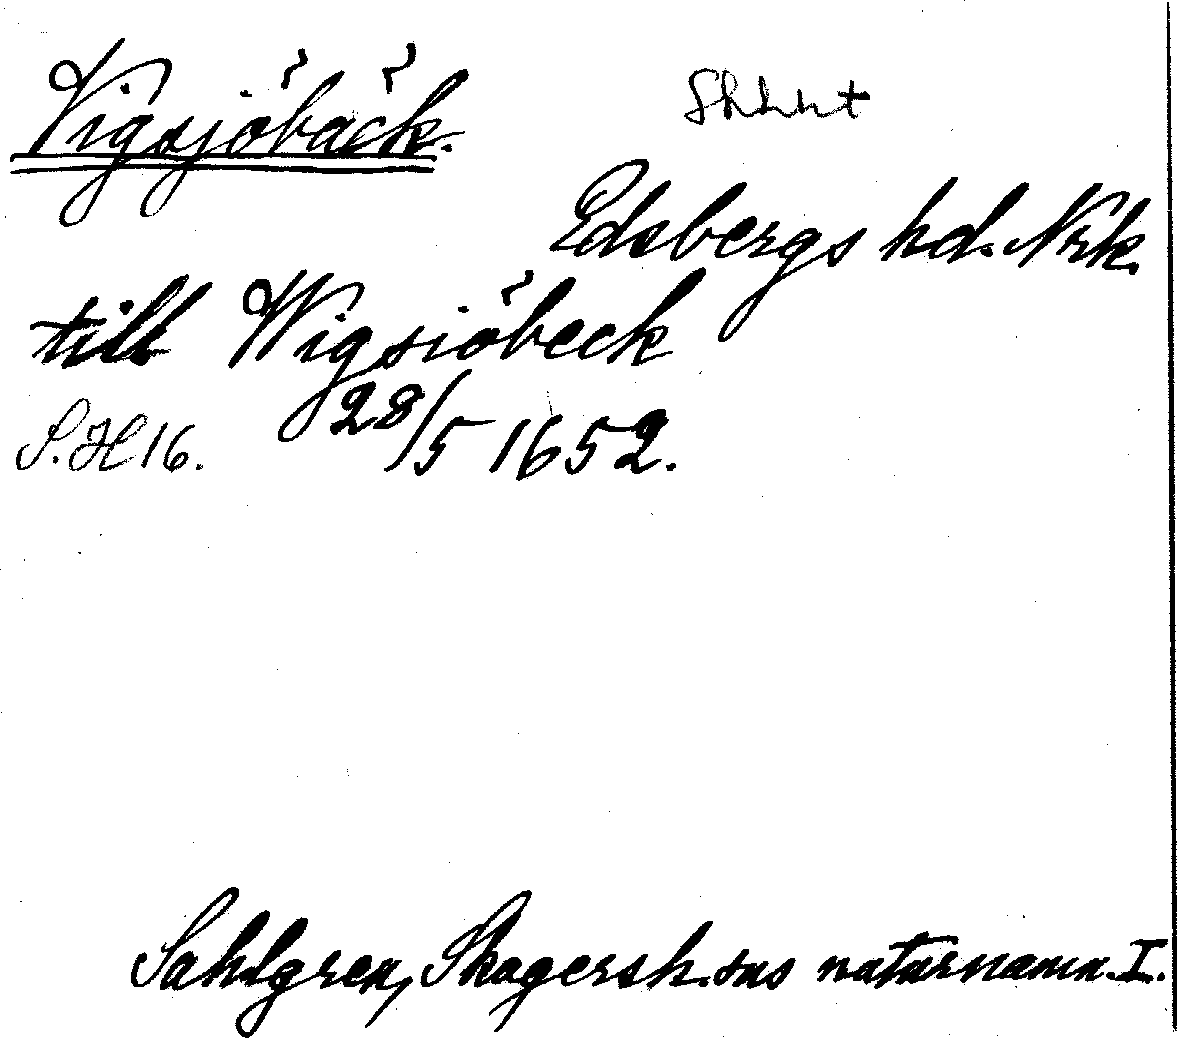 Vigsjöbäck.
Edsbergs hd. Nrk.
till Wigsiöbeck
S.H 16. 28/5 1652.
Sahlgren, Skagersh. sns naturnamn. I.